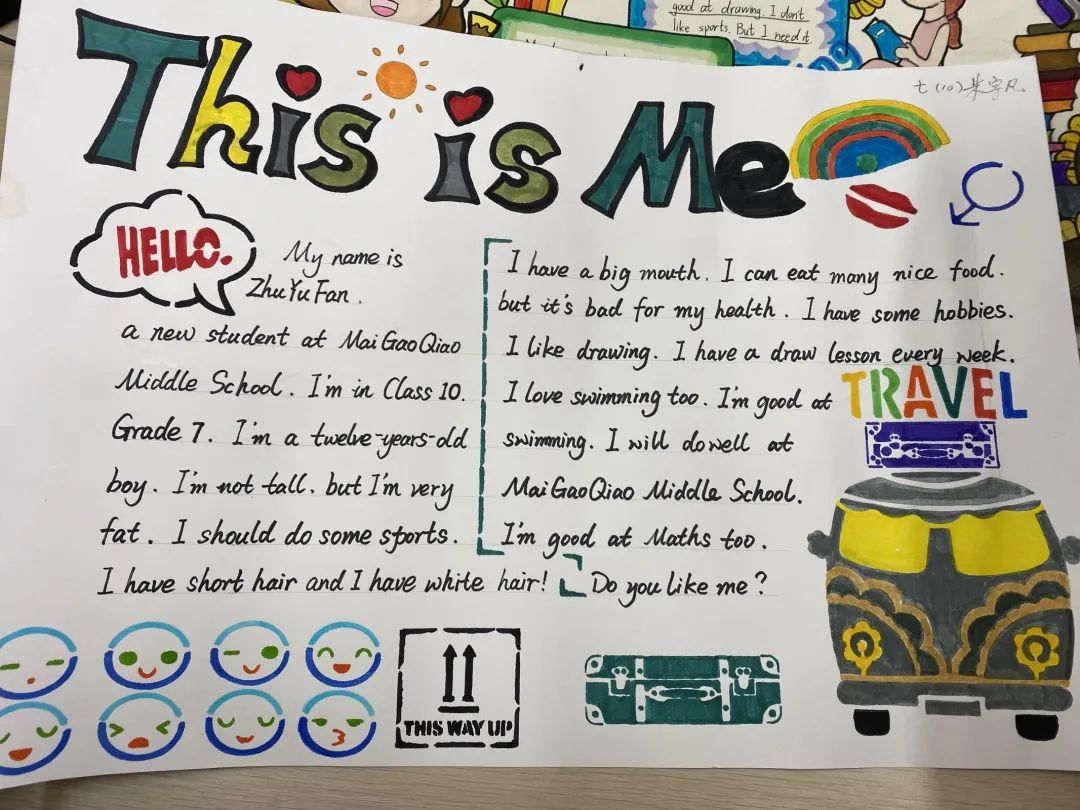 good at drawing. I don't
like sports. But I need it.
This is Me
七(10)朱宇凡
HELLO.
My name is
ZhuYuFan.
a new student at MaiGaoQiao
Middle School. I'm in Class 10.
Grade 7. I'm a twelve-years-old
boy. I'm not tall. but I'm very
fat. I should do some sports.
I have short hair and I have white hair!
I have a big mouth. I can eat many nice food.
but it's bad for my health. I have some hobbies.
I like drawing. I have a draw lesson every week.
I love swimming too. I'm good at
swimming. I will do well at
MaiGaoQiao Middle School.
I'm good at Maths too.
Do you like me?
TRAVEL
THIS WAY UP